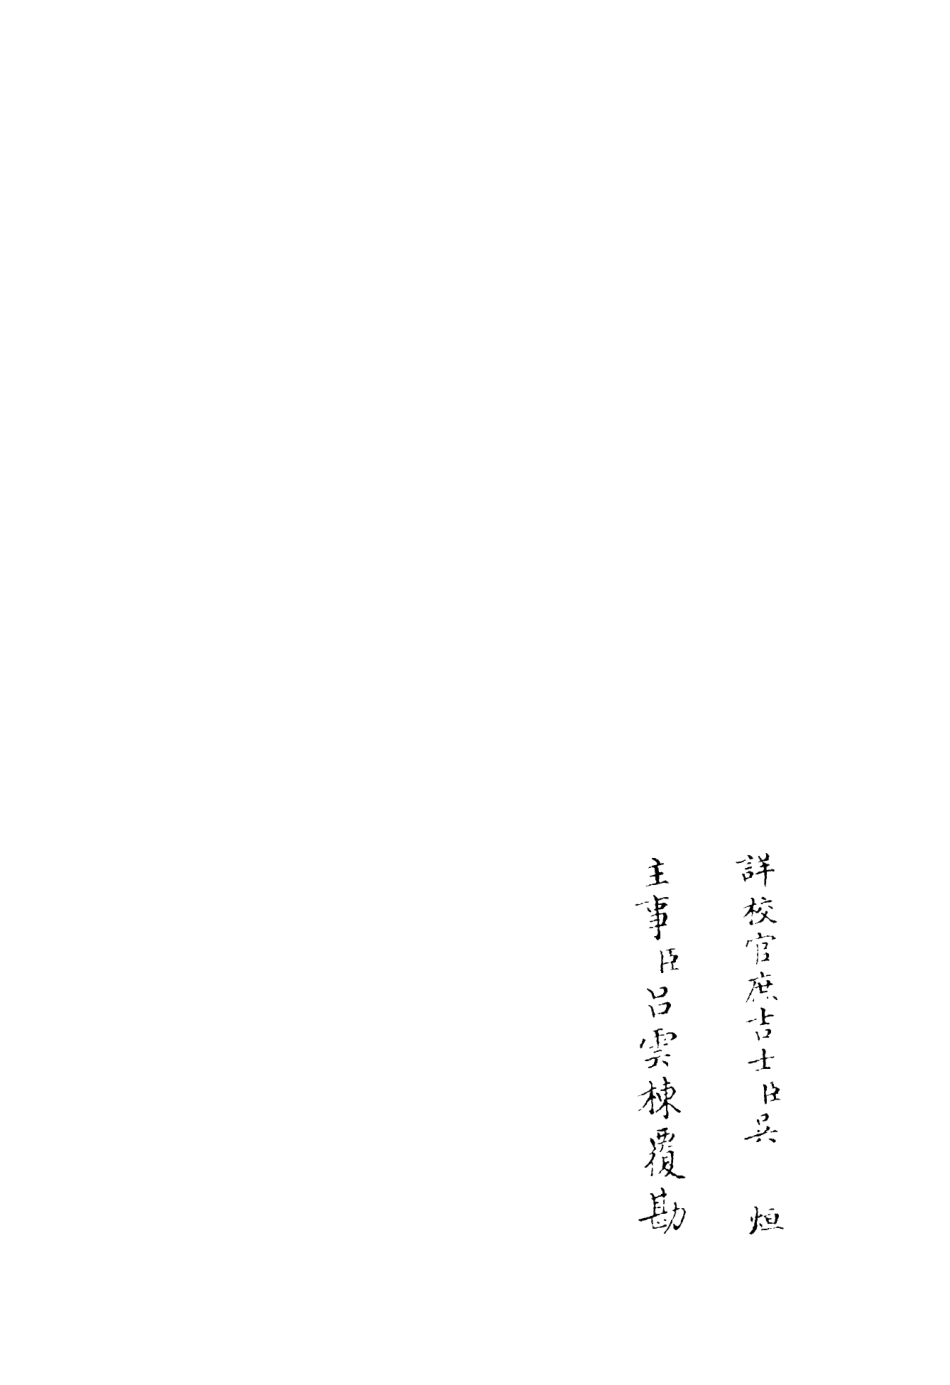 詳校官庶吉士臣吳烜
主事臣呂雲棟覆勘